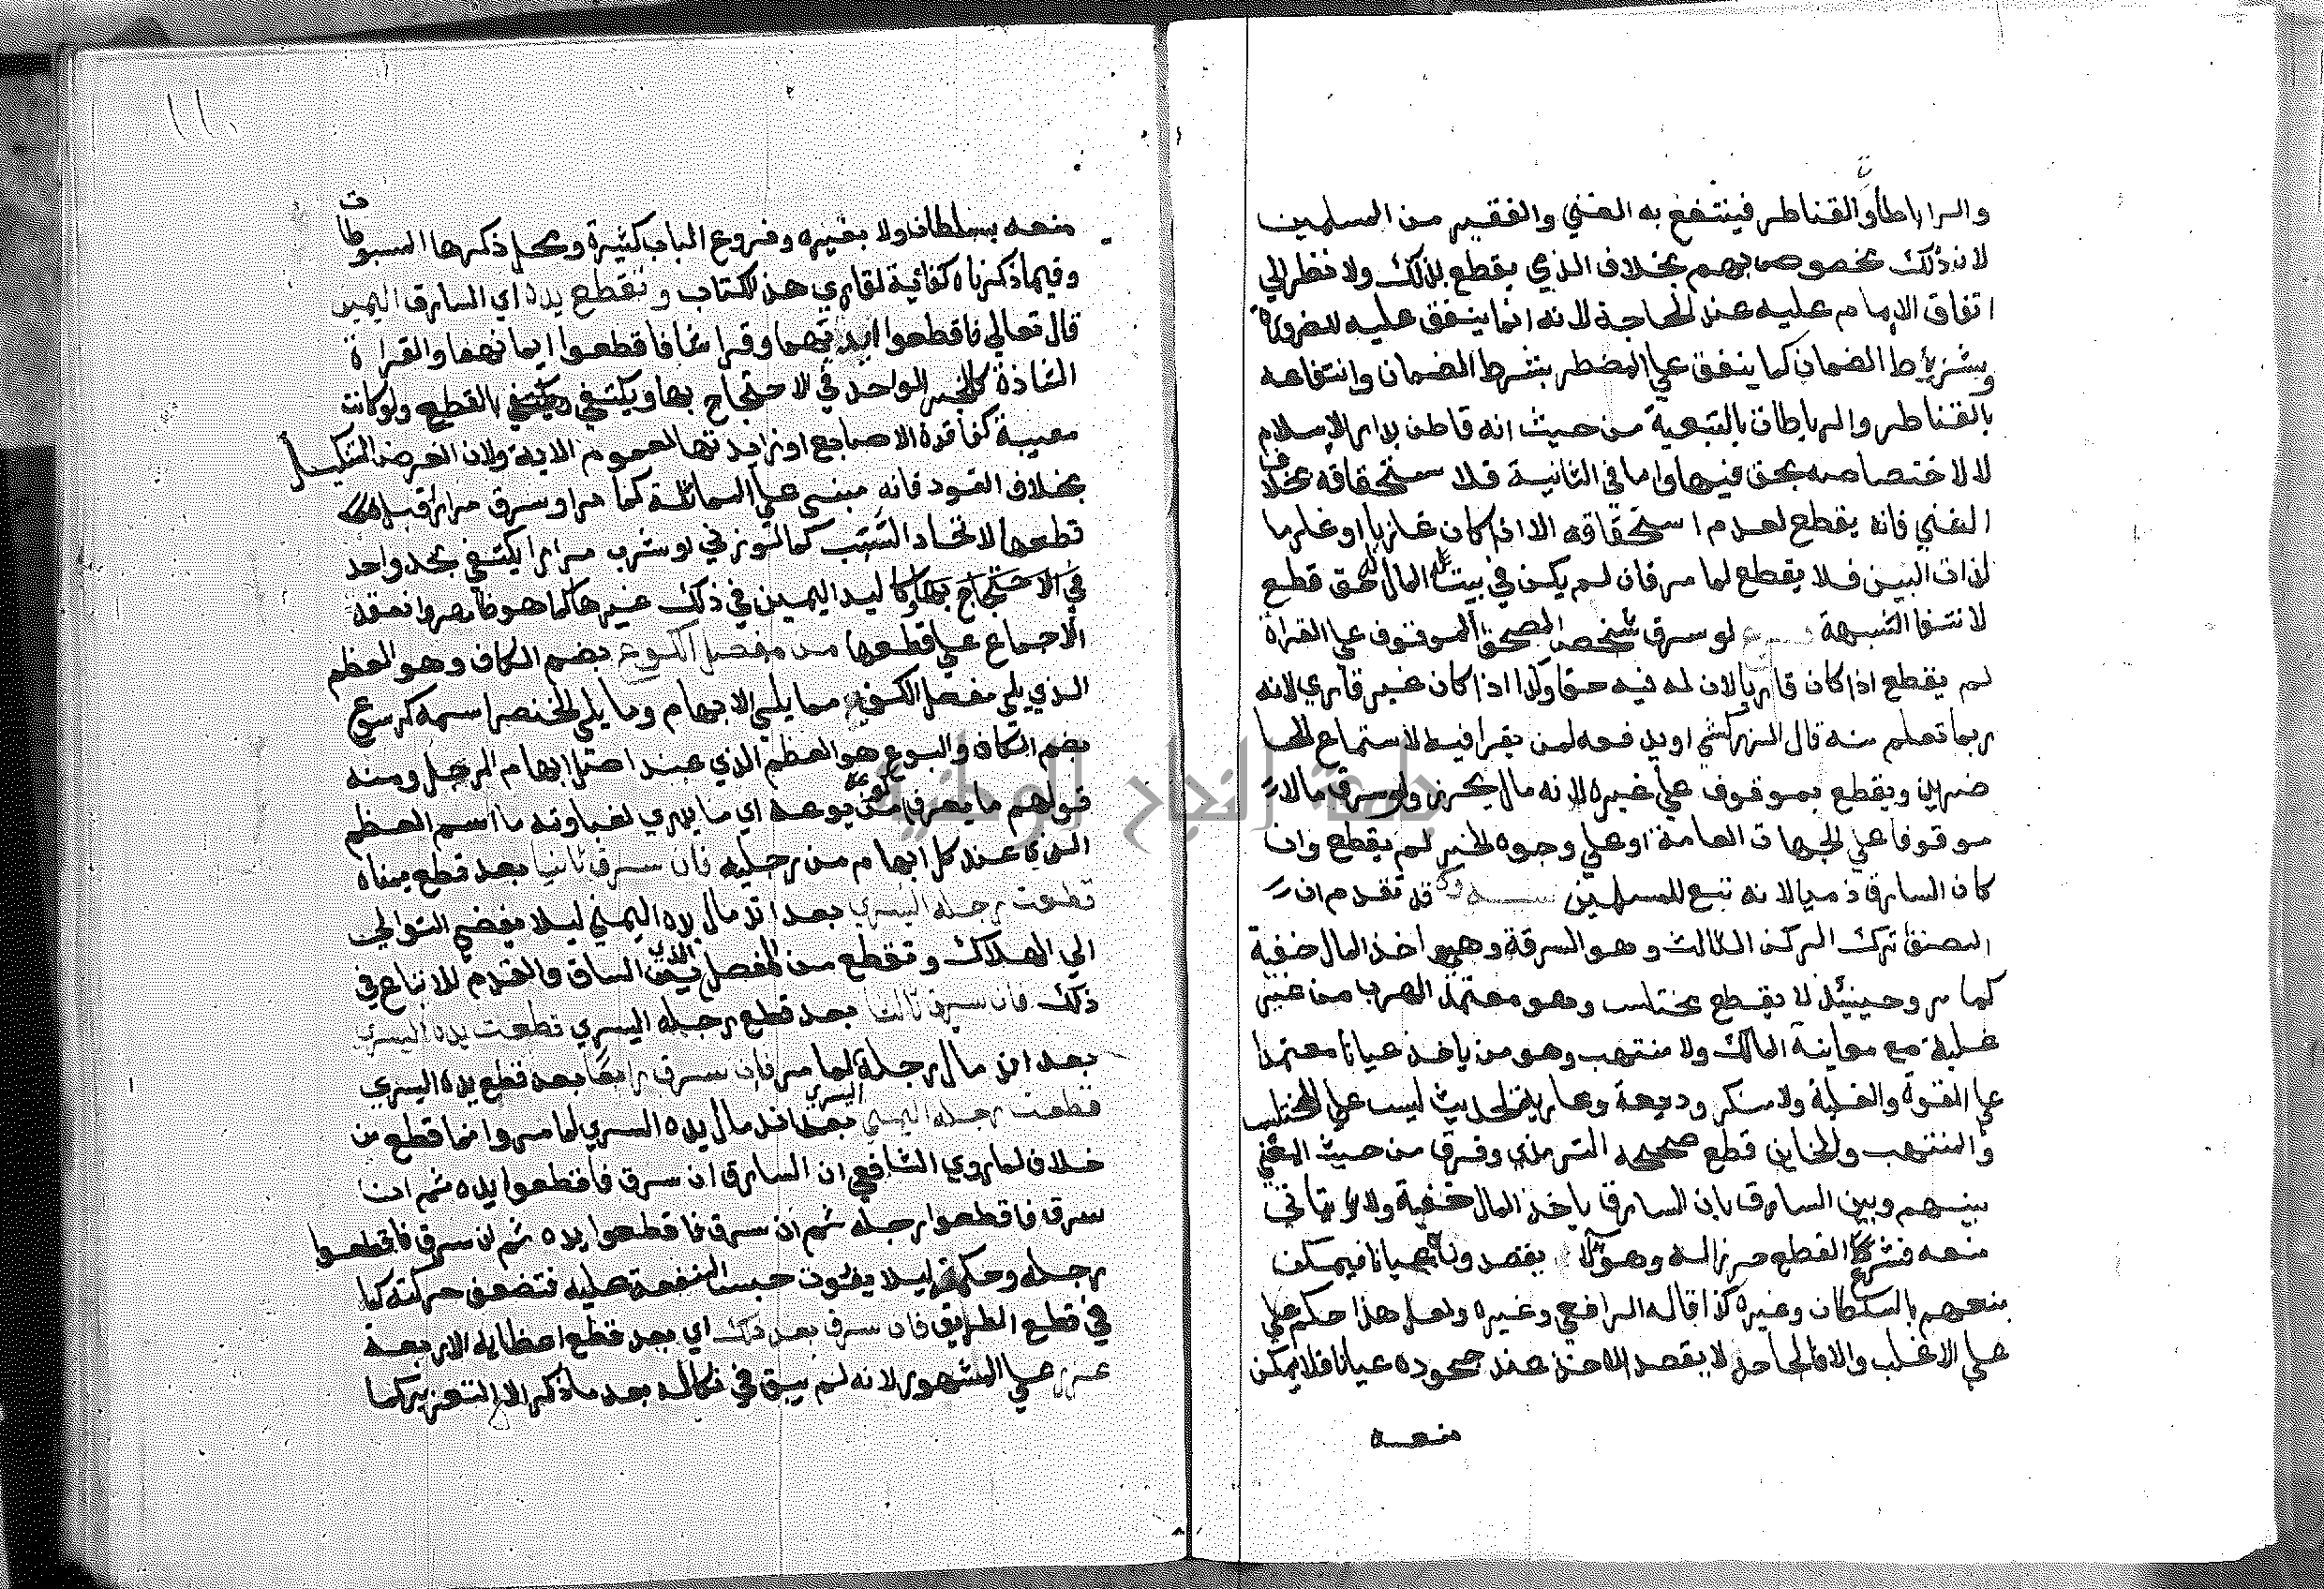 والرباطات والقناطر فينتفع به الغني والفقير من المسلمين
لان ذلك مخصوص بهم بخلاف الذي يقطع بذلك ولا نظر الي
اتفاق الامام عليه عند الحاجة لانه انما ينفق عليه للضرورة
وبشرط الضمان كما ينفق علي المضطر بشرط الضمان وانتفاعه
بالقناطر والرباطات بالتبعية من حيث انه قاطن بدار الاسلام
لا لاختصاصه بحق فيها واما في الثانية فلاستحقاقه بخلاف
الغني فانه يقطع لعدم استحقاقه الا اذا كان غازيا او غارما
لذات البين فلا يقطع لما مر فان لم يكن في بيت المال له حق قطع
لانتفا الشبهة فرع لو سرق شخص المصحف الموقوف علي القراة
لم يقطع اذا كان قاريا لان له فيه حقا وكذا اذا كان غير قاري لانه
ربما تعلم منه قال الزركشي او يدفعه لمن يقرا فيه لاستماع الحا
ضرين ويقطع بموقوف علي غيره لانه مال محرز ولو سرق مالا
موقوفا علي الجهات العامة او علي وجوه الخير لم يقطع وان
كان السارق ذميا لانه تبع للمسلمين تنبيه قد تقدم ان
المصنف ترك الركن الثالث وهو السرقة وهي اخذ المال خفية
كما مر وحينيذ لا يقطع مختلس وهو معتمد الهرب من غير
غلبة مع معاينة المالك ولا منتهب وهو من ياخذ عيانا معتمدا
علي القوة والغلبة ولا منكر وديعة وعارية لحديث ليس علي المختلس
والمنتهب والخاين قطع صححه الترمذي وفرق من حيث المعني
بينهم وبين السارق بان السارق ياخذ المال خفية ولا يتاتي
منعه فشرع القطع زجرا له وهولا يقصدونه عيانا فيمكن
منعهم بالسلطان وغيره كذا قاله الرافعي وغيره ولعل هذا حكم علي
علي الاغلب والا فالجاحد لا يقصد الاخذ عند جحوده عيانا فلا يمكن
منعه
١١٠
منعه بسلطان ولا بغيره وفروع الباب كثيرة ومحل ذكرها المبسوطات
وفيما ذكرناه كفاية لقاري هذا الكتاب وتقطع يده اي السارق اليمين
قال تعالي فاقطعوا ايديهما وقرا شاذا فاقطعوا ايمانهما والقراة
الشاذة كالخبر الواحد في الاحتجاج بها ويكتفي بالقطع ولو كانت
معيبة كفاقدة الاصابع او زايدتها لعموم الاية ولان الغرض التنكيل
بخلاف القود فانه مبني علي المماثلة كما مر او سرق مرارا قبل
قطعها لاتحاد السبب كما لو زني او شرب مرارا يكتفي بحد واحد
في الاحتجاج بها وكاليد اليمين في ذلك غيرها كما هو ظاهر وانعقد
الاجماع علي قطعها من مفصل الكوع بضم الكاف وهو العظم
الذي يلي مفصل الكف مما يلي الابهام وما يلي الخنصر اسمه كرسوع
بضم الكاف والبوع هو العظم الذي عند اصل ابهام الرجل ومنه
قولهم ما يعرف كوعه من بوعه اي ما يدري لغباوته ما اسم العظم
الذي عند كل ابهام من رجليه فان سرق ثانيا بعد قطع يمناه
قطعت رجله اليسري بعد اندمال يده اليمني ليلا يفضي التوالي
الي الهلاك وتقطع من المفصل الذي بين الساق والقدم للاتباع في
ذلك فان سرق ثالثا بعد قطع رجله اليسري قطعت يده اليسري
بعد اندمال رجله لما مر فان سرق رابعا بعد قطع يده اليسري
قطعت رجله اليمني بعد اندمال يده اليسري لما مر وانما قطع من
خلاف لما روي الشافعي ان السارق ان سرق فاقطعوا يده ثم ان
سرق فاقطعوا رجله ثم ان سرق فاقطعوا يده ثم ان سرق فاقطعوا
رجله وحكمته ليلا يفوت جنس المنفعة عليه فتضعف حركته كما
في قطع الطريق فان سرق بعد ذلك اي بعد قطع اعضايه الاربعة
عزر علي المشهور لانه لم يبق في نكاله بعد ما ذكر الا التعزير كما